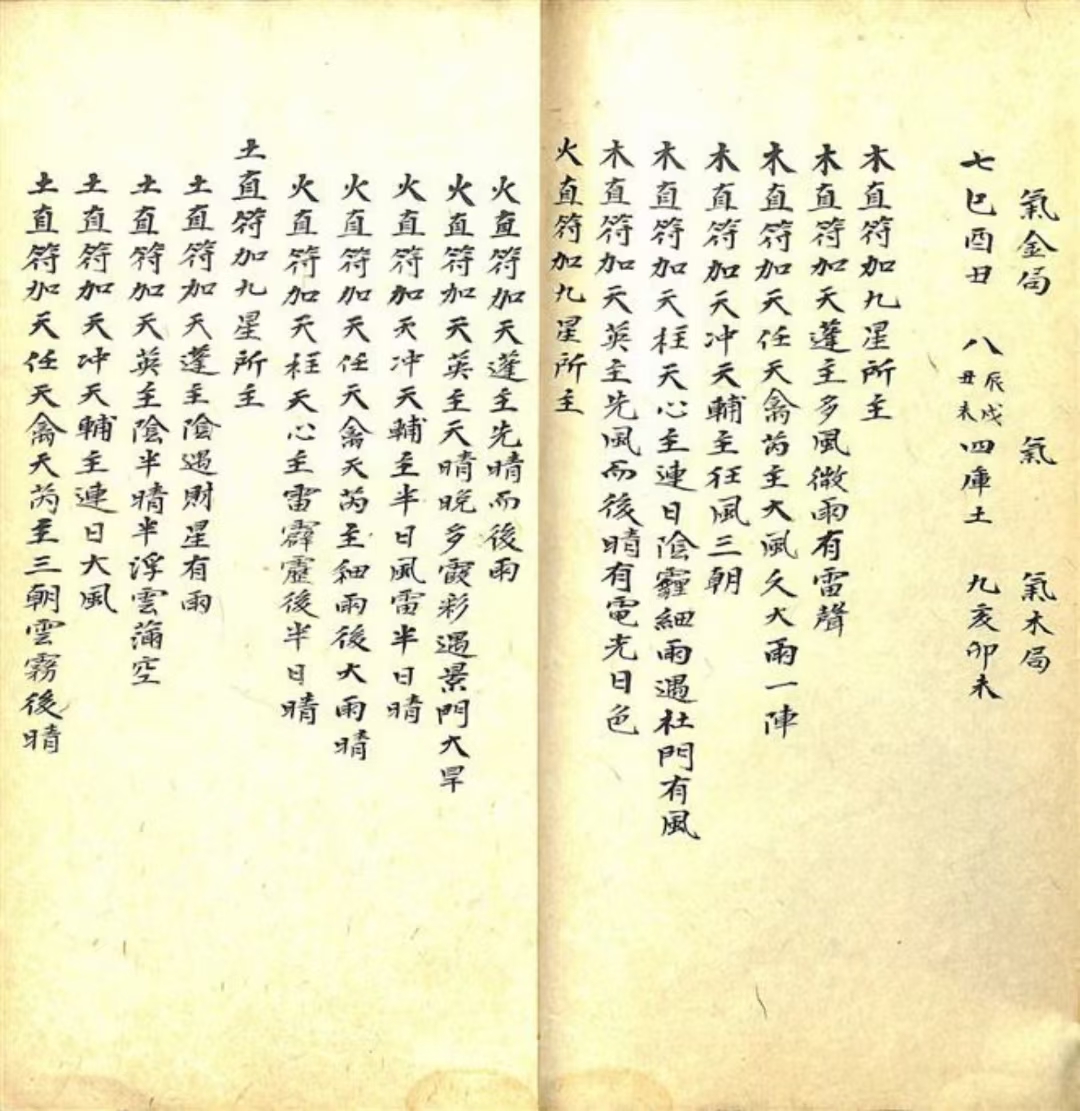 氣金局 氣 氣木局
七巳酉丑 八辰戌丑未四庫土 九亥卯未
木直符加九星所主
木直符加天蓬主多風微雨有雷聲
木直符加天任天禽芮主大風久大雨一陣
木直符加天冲天輔主狂風三朝
木直符加天柱天心主連日陰霾細雨遇社門有風
木直符加天英主先風而後晴有電光日色
火直符加九星所主
火直符加天蓬主先晴而後雨
火直符加天英主天晴晚多霞彩遇景門大旱
火直符加天冲天輔主半日風雷半日晴
火直符加天任天禽天芮主細雨後大雨晴
火直符加天柱天心主雷霹靂後半日晴
土直符加九星所主
土直符加天蓬主陰遇財星有雨
土直符加天英主陰半晴半浮雲蒲空
土直符加天冲天輔主連日大風
土直符加天任天禽天芮主三朝雲霧後晴